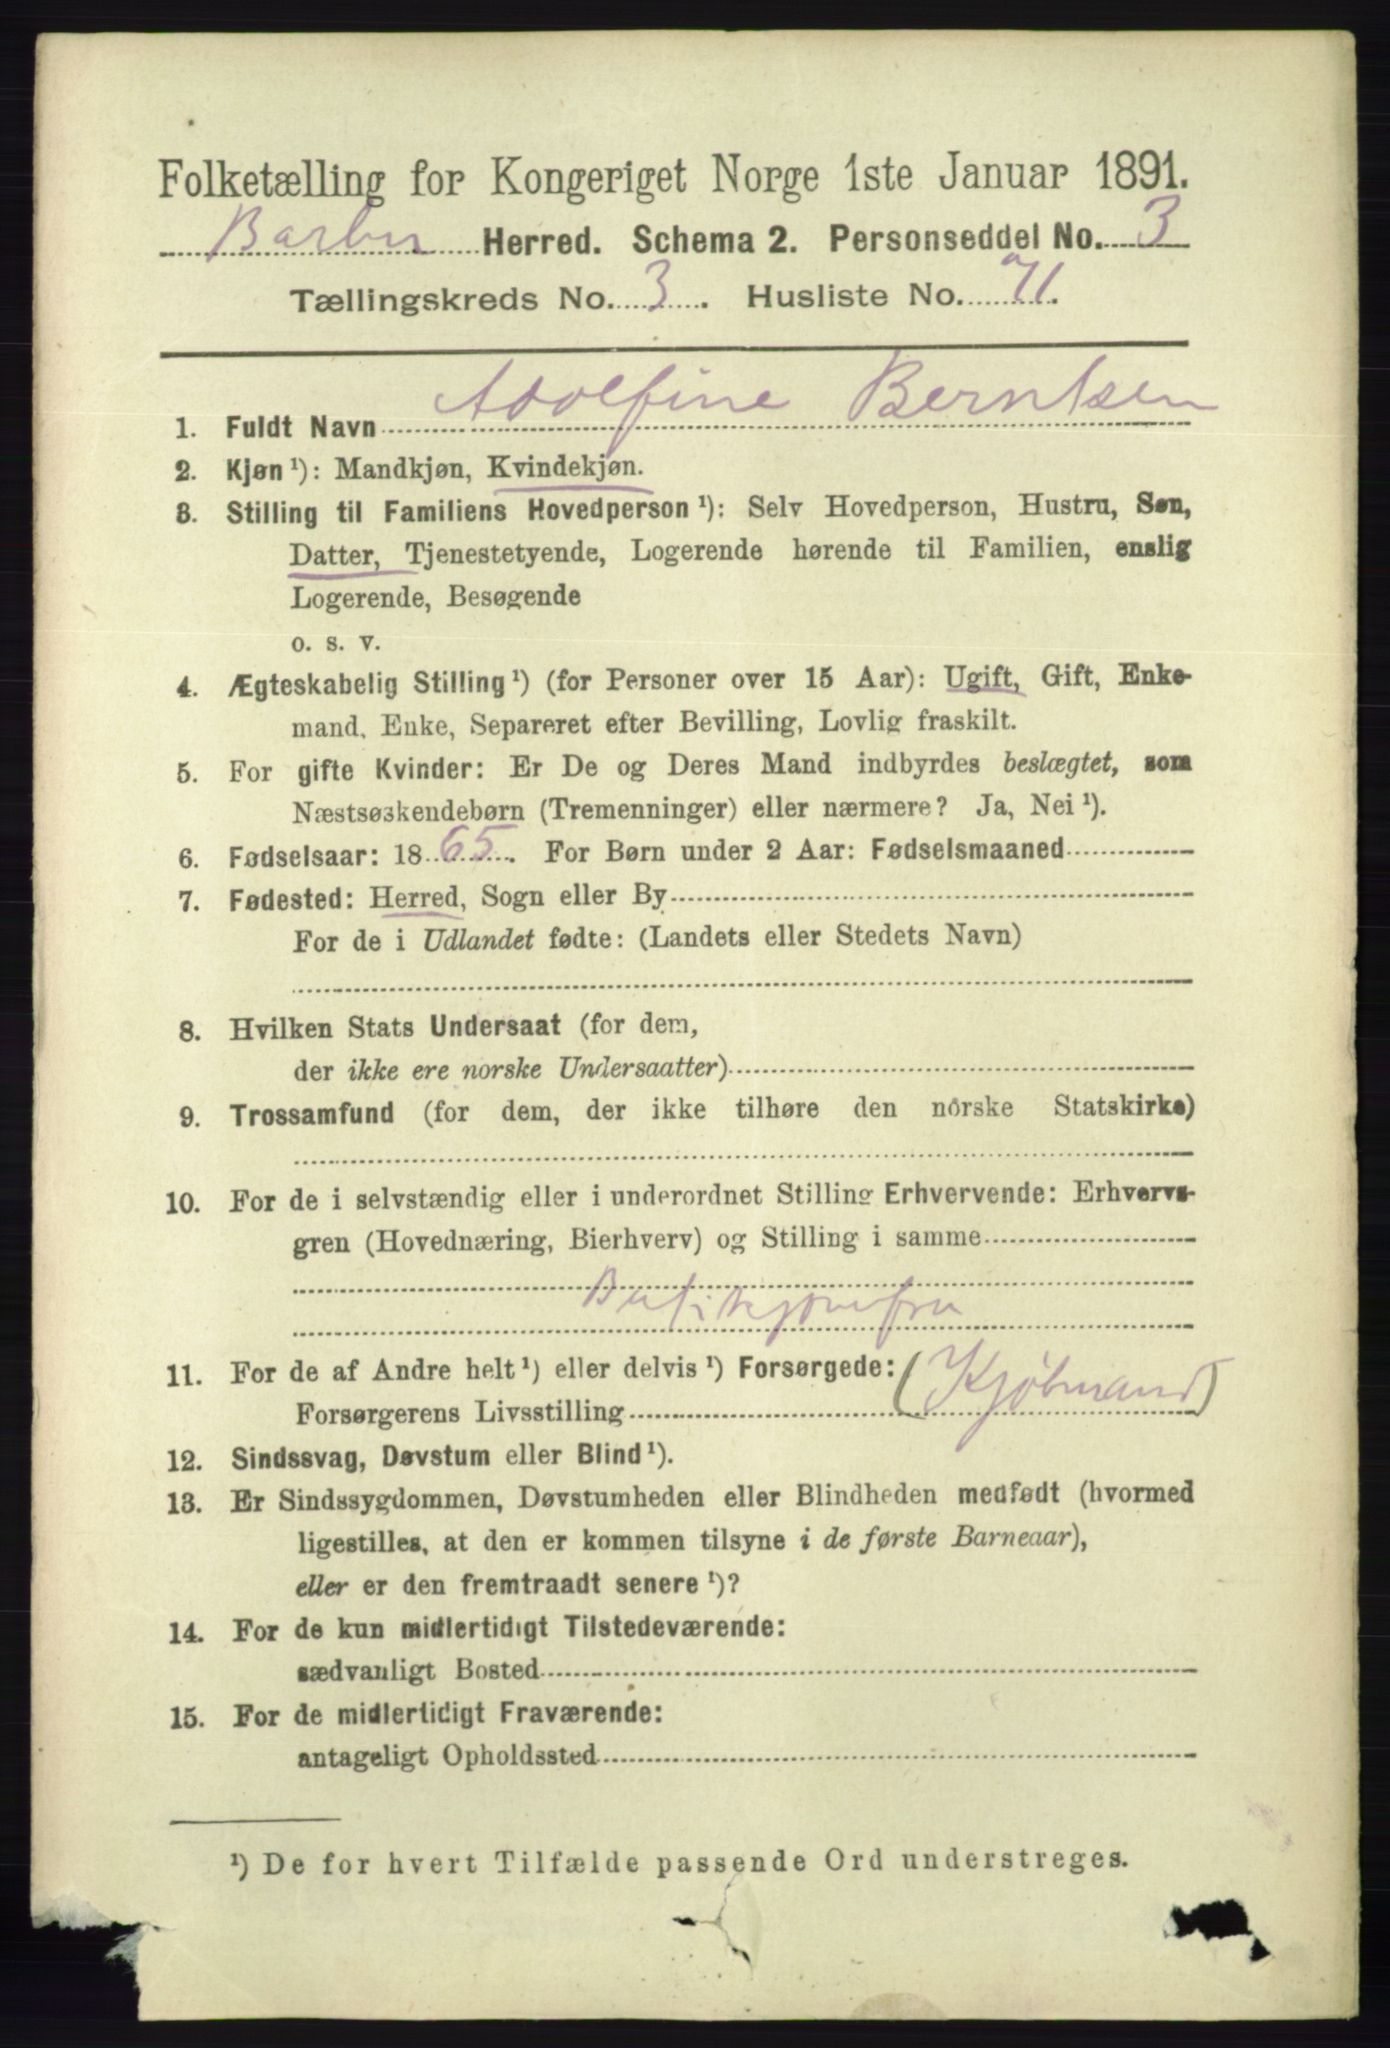 Folketælling for Kongeriget Norge 1ste Januar 1891.
Barbu Herred. Schema 2. Personseddel No. 3
Tællingskreds No. 3. Husliste No. 71.
1. Fuldt Navn Adolfine Berntsen
2. Kjøn ¹): Mandkjøn, Kvindekjøn.
3. Stilling til Familiens Hovedperson ¹): Selv Hovedperson, Hustru, Søn,
Datter, Tjenestetyende, Logerende hørende til Familien, enslig
Logerende, Besøgende
o. s. v.
4. Ægteskabelig Stilling ¹) (for Personer over 15 Aar): Ugift, Gift, Enke-
mand, Enke, Separeret efter Bevilling, Lovlig fraskilt.
5. For gifte Kvinder: Er De og Deres Mand indbyrdes beslægtet, som
Næstsøskendebørn (Tremenninger) eller nærmere? Ja, Nei ¹).
6. Fødselsaar: 1865. For Børn under 2 Aar: Fødselsmaaned
7. Fødested: Herred, Sogn eller By
For de i Udlandet fødte: (Landets eller Stedets Navn)
8. Hvilken Stats Undersaat (for dem,
der ikke ere norske Undersaatter)
9. Trossamfund (for dem, der ikke tilhøre den norske Statskirke)
10. For de i selvstændig eller i underordnet Stilling Erhvervende: Erhvervs-
gren (Hovednæring, Bierhverv) og Stilling i samme
Butikjomfru
11. For de af Andre helt ¹) eller delvis ¹) Forsørgede: (Kjøbmand)
Forsørgerens Livsstilling
12. Sindssvag, Døvstum eller Blind ¹).
13. Er Sindssygdommen, Døvstumheden eller Blindheden medfødt (hvormed
ligestilles, at den er kommen tilsyne i de første Barneaar),
eller er den fremtraadt senere ¹)?
14. For de kun midlertidigt Tilstedeværende:
sædvanligt Bosted
15. For de midlertidigt Fraværende:
antageligt Opholdssted
¹) De for hvert Tilfælde passende Ord understreges.